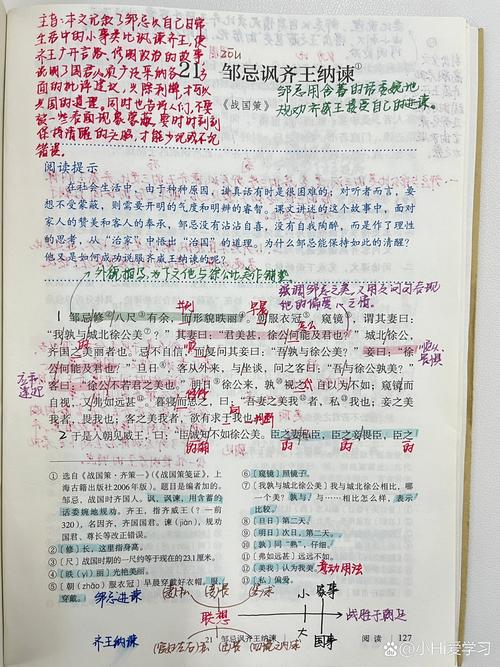 主旨：本文记叙了邹忌以自己日常
生活中的小事类比讽谏齐王，使
齐王广开言路、修明政治的故事
说明了国君必须广泛采纳各方
面的批评建议，兴利除弊，才可以
兴国的道理。同时也告诉人们，不要
被一些表面现象蒙蔽，要时时刻刻
保持清醒的头脑，才能少犯或不犯
错误。
zōu
21 邹忌讽齐王纳谏①
《战国策》
邹忌用含蓄的话委婉地
规劝齐威王接受自己的进谏
阅读提示
在社会生活中，由于种种原因，讲真话有时是很困难的；对听者而言，要
想不受蒙蔽，则需要开明的气度和明辨的智睿。课文讲述的这个故事中，面对
家人的赞美和客人的奉承，邹忌没有沾沾自喜，没有自我陶醉，而是作了理性
的思考，从“治家”中悟出“治国”的道理。为什么邹忌能保持如此的清醒？
他又是如何成功说服齐威王纳谏的呢？
1 邹忌修②八尺③有余，而形貌昳丽④。朝服衣冠⑤，窥镜⑥，谓其妻曰：
“我孰与城北徐公美⑦？”其妻曰：“君美甚，徐公何能及君也？”城北徐公，
齐国之美丽者也。忌不自信，而复问其妾曰：“吾孰与徐公美？”妾曰：“徐
公何能及君也！”旦日⑧，客从外来，与坐谈，问之客曰：“吾与徐公孰美？”
客曰：“徐公不若君之美也。”明日⑨徐公来，孰⑩视之，自以为不如；窥镜而
自视，又弗如远甚⑪。暮寝而思之，曰：“吾妻之美我⑫者，私⑬我也；妾之美
我者，畏我也；客之美我者，欲有求于我也。”
顺从
畏惧
判断
2 于是入朝见威王，曰：“臣诚知不如徐公美。臣之妻私臣，臣之妾畏臣，臣之
① 选自《战国策·齐策一》（《战国策笺证》，上
海古籍出版社2006年版）。题目是编者加的。
邹忌，战国时齐国人。讽，讽谏，用含蓄的
话委婉地规劝。齐王，指齐威王（？—前
320），名因齐，齐国国君。谏（jiàn），规劝
国君、尊长等改正错误。
②〔修〕长，这里指身高。
③〔尺〕战国时期的一尺约等于现在的23.1厘米。
④〔昳（yì）丽〕光艳美丽。
⑤〔朝（zhāo）服衣冠〕早晨穿戴好衣帽。服，
穿戴。
⑥〔窥镜〕照镜子。
⑦〔我孰与城北徐公美〕我与城北徐公相比，哪
一个美？孰与，与……相比怎么样，表示
比较。
⑧〔旦日〕第二天。
⑨〔明日〕次日，第二天。
⑩〔孰〕同“熟”，仔细。
⑪〔弗如远甚〕远远不如。
⑫〔美我〕认为我美。
意动用法
⑬〔私〕偏爱。
邹忌进谏
联想
小
家事
大
国事
战胜于朝廷
齐王纳谏
21 邹忌讽齐王纳谏
阅读 127
知乎 @小Hi爱学习